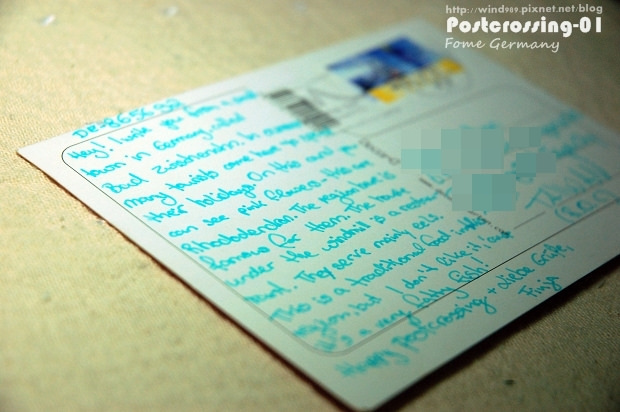 http://wind989.pixnet.net/blog
Postcrossing-01
Fome Germany
Hey! I write you from a small
town in Germany called
Bad Zwischenahn. In summer
many tourists come here to spend
their holidays. On this card you
can see pink flowers. this are
Rhododendron. The region here is
famous for them. The house
under the windmill is a restau-
rant. They serve mainly eels.
This is a traditional food in this
region, but I don't like it cause
it is a very fatty fish!
Happy postcrossing + liebe Grüße,
Finja
TAIWAN